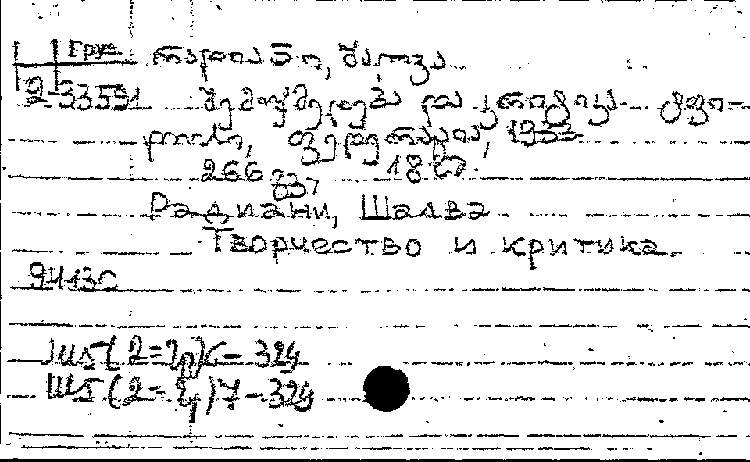 Груз
რადიანი, შალვა
2-33591 შემოქმედება და კრიტიკა ტფი-
ლისი, ფედერაცია, 1933
266 გვ,
Радиани, Шалва
Творчество и критика.
94130
Ш5(2=Гр)6-324
Ш5(2=Гр)7-324